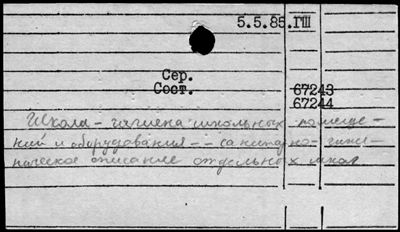 5.5.85.ГIII
Сер.
Сост.
67243
67244
Школа – гигиена школьных помеще-
ний и оборудования -- санитарно-гиги-
ническое описание отдельных школ.